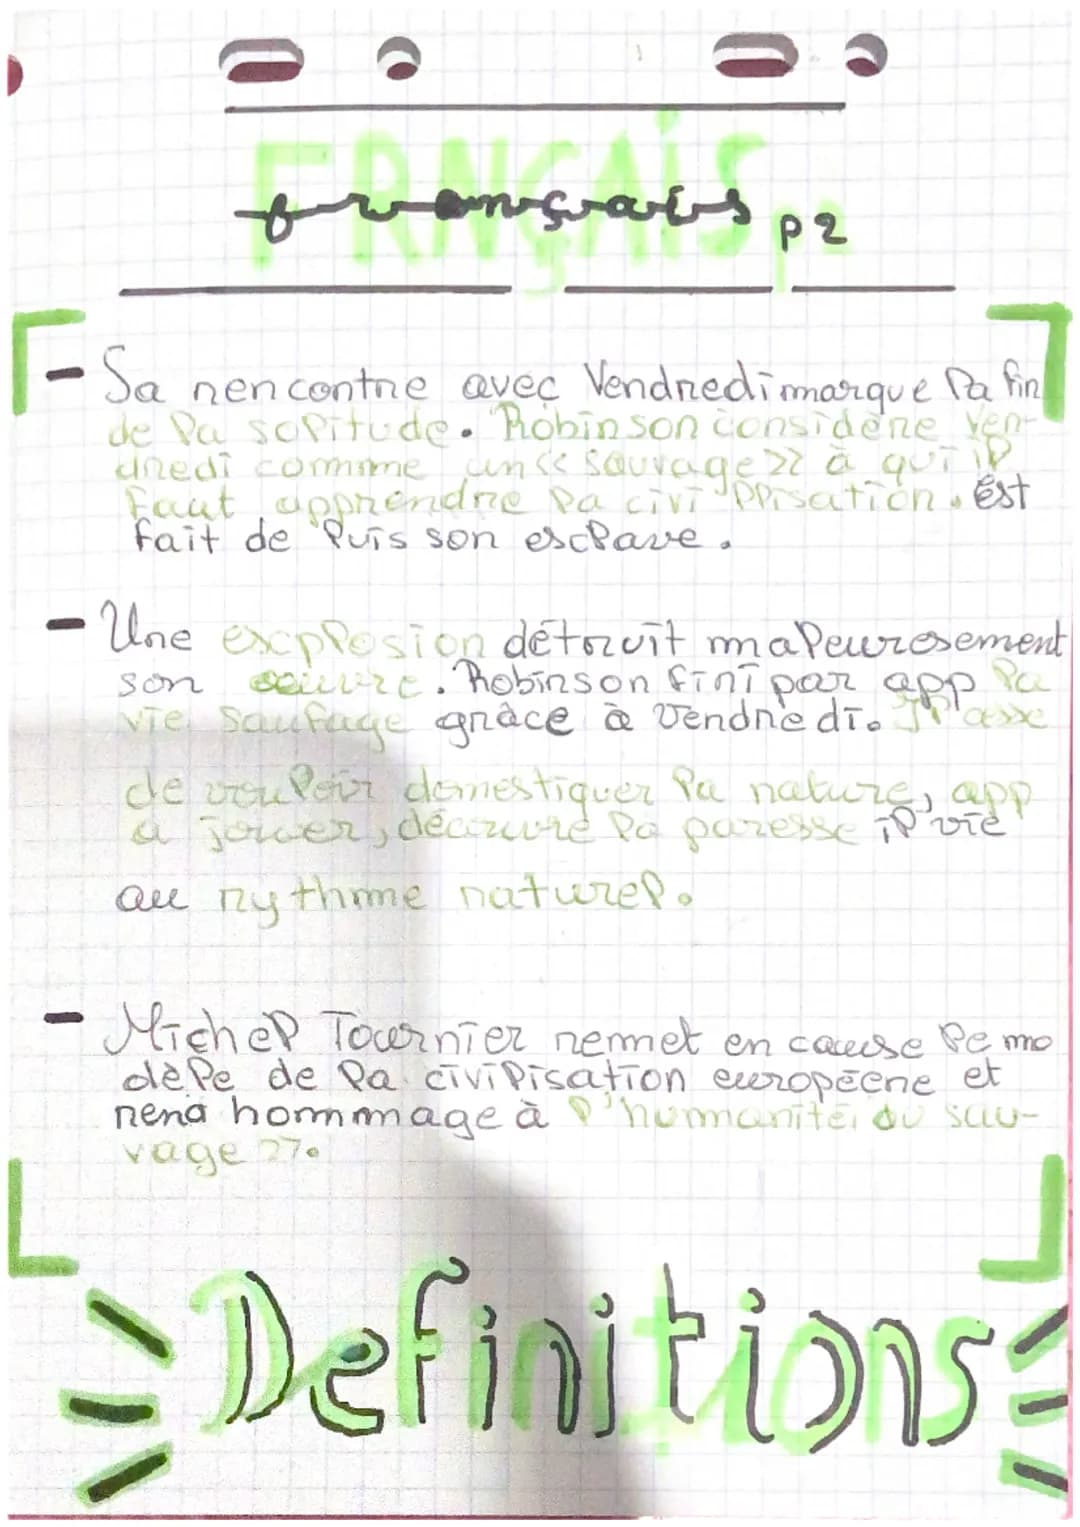 FRNÇAIS
français p2
- Sa rencontre avec Vendredi marque la fin
de la solitude. Robinson considère Ven-
dredi comme un << sauvage >> à qui il
faut apprendre la civi llisation. Est
fait de luis son esclave.
- Une explosion détruit maleuresement
son oeuvre. Robinson fini par app la
vie saufage grâce à Vendredi. Il cesse
de vouloir domestiquer la nature, app
a jouer, découvre la paresse il vie
au rythme naturel.
- Michel Tournier remet en cause le mo
dèle de la civilisation européene et
rend hommage à l'hummanité, du sau-
vage >>.
Definitions